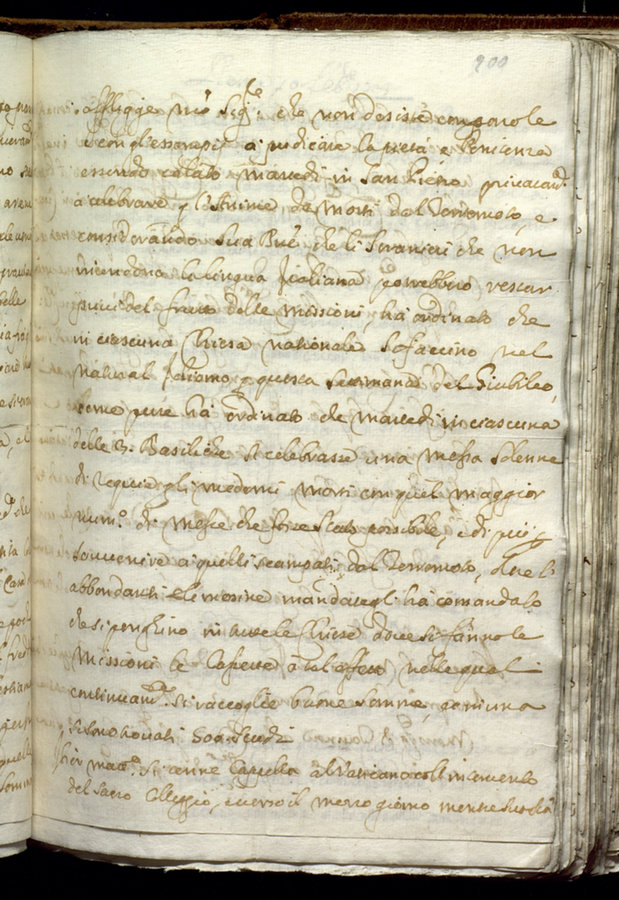 200
affligge N'ro Sig.re che non desiste con parole
e con gli essempij a predicare la pietà e Penitenza
essendo calato martedì in San Pietro privatam.te
a celebrare p l'Anime de Morti dal Terremoto, e
considerando Sua B.ne che li Stranieri che non
intendono la lingua Italiana potrebbero restar
privi del frutto delle Missioni, ha ordinato che
in ciascuna Chiesa nationale si faccino nel
natural Idioma p questa settimana del Giubileo,
come pure ha ordinato che martedì in ciascuna
delle 3. Basiliche si celebrasse una messa solenne
di requie p gli medemi Morti con quel maggior
num.o di Messe che fosse stato possibile, e di più p
souvenire a quelli scampati dal Terremoto, oltre l'
abbondanti Elemosine mandategli ha comandato
che si ponghino in tutte le Chiese dove si fanno le
Missioni le Cassette a tal effetto, nelle quali
continuam.te si raccoglie buone somme, e in una
si sono trovati 500 scudi
hier matt.a si tenne Cappella al Vaticano coll'intervento
del Sacro Colleggio, e verso il mezzo giorno mentre